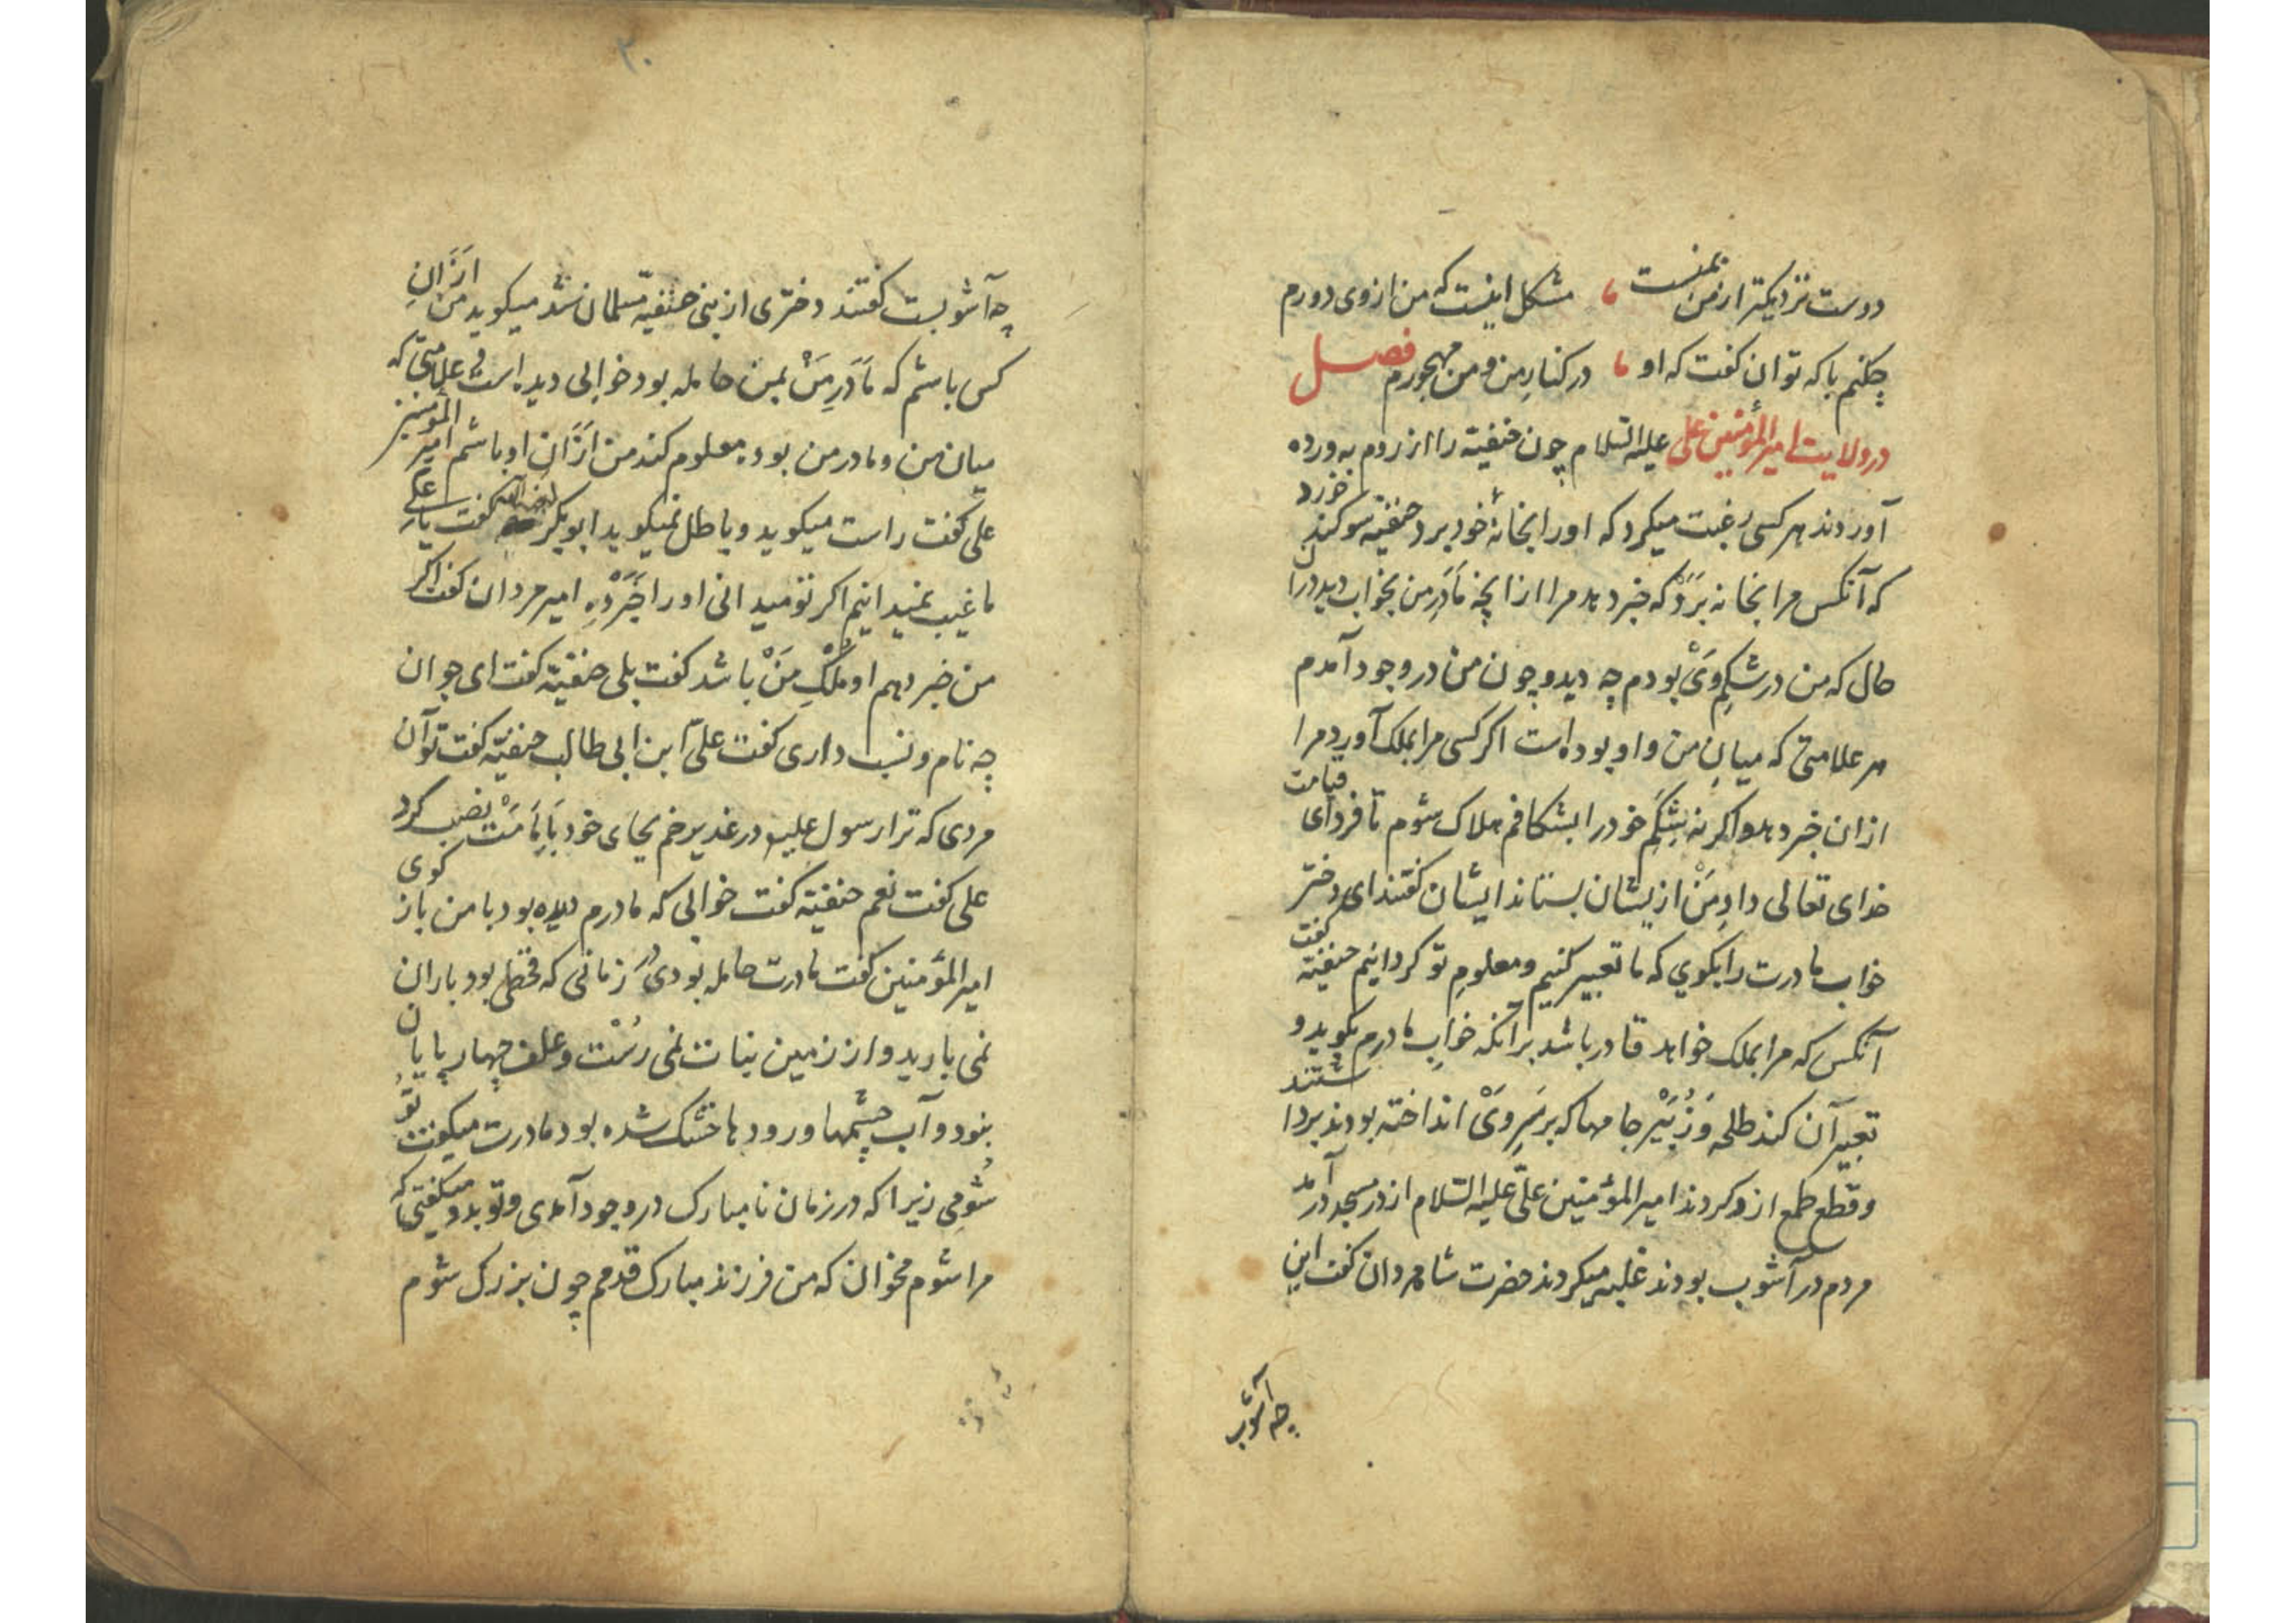 دوست نزدیکتر از من بمنست ، مشکل اینست که من از وی دورم
چکنم با که توان گفت که او ، در کنارِ من و من مهجورم فصل
در ولایت امیرالمؤمنین علی علیه السّلام چون حنفیّه را از روم به ورده
آوردند هر کسی رغبت میکرد که او را بخانهٔ خود برد حنفیّه سوکند خورد
که آنکس مرا بخانه بَرَدْ که خبر دهد مرا از آنچه مَادَرِ من بخواب دید در آن
حال که من در شکمِ وَیْ بودم چه دید و چون من در وجود آمدم
هر علامتی که میانِ من و او بوده است اکر کسی مرا بملک آورد مرا
از ان خبر دهد و اکر نه شِکَمِ خود را بشکافم هلاک شوم تا فردای قیامت
خدای تعالی دادِ مَنْ از یشان بستاند ایشان کفتند ای دختر
خواب مادرت را بکوي که ما تعبیر کنیم و معلومِ تو کردانیم حنفیّه کفت
آنکس که مرا بملک خواهد قادر باشد بر آنکه خوابِ مادرم بکوید و
تعبیر آن کند طلحه وَ زُبَیْر جامها که بر سَرِ وَیْ انداخته بودند برداشتند
و قطع طمع ازو کردند امیرالمؤمنین علیّ علیه السّلام از در مسجد در آمد
مردم در آشوب بودند غلبه میکردند حضرت شاه مردان کفت این
چه آشوبـ
۳۰
چه آشوبست کفتند دختری از بنی حنفیّه مسلمان شد میکوید من ازَانِ
کس باشم که مَادَرِ مَنْ بمن حامله بود خوابی دیده است و علامتی که
میان من و مادر من بوده معلوم کند من ازَانِ او باشم امیر المؤمنین
علی کفت راست میکوید و باطل نمیکوید ابوبکر کفت یا علی
ما غیب نمیدانیم اکر تو میدانی او را خَبَرْ دِهِ امیر مردان کفت اکر
من خبر دهم او مُلْکِ مَنْ باشد کفت بلی حنفیّه کفت ای جوان
چه نام و نسب داری کفت علیّ ابن ابی طالب حنفیّه کفت تو آن
مردی که ترا رسول علیه در غدیر خم بجای خود بِاِمَامَتْ نصب کرد
علی کفت نعم حنفیّه کفت خوابی که مادرم دیده بود با من باز کوی
امیرالمؤمنین کفت مادرت حامله بودی در زمانی که قحطی بود باران
نمی بارید و از زمین نبات نمی رُسْت و علف چهار پایان
نبود و آب چشمها و رودها خشک شده بود مادرت میکفت تو
شُومی زیرا که در زمان نامبارک در وجود آمدی و تو بدو میکفتی که
مرا شوم مخوان که من فرزند مبارک قدمم چون بزرک شوم